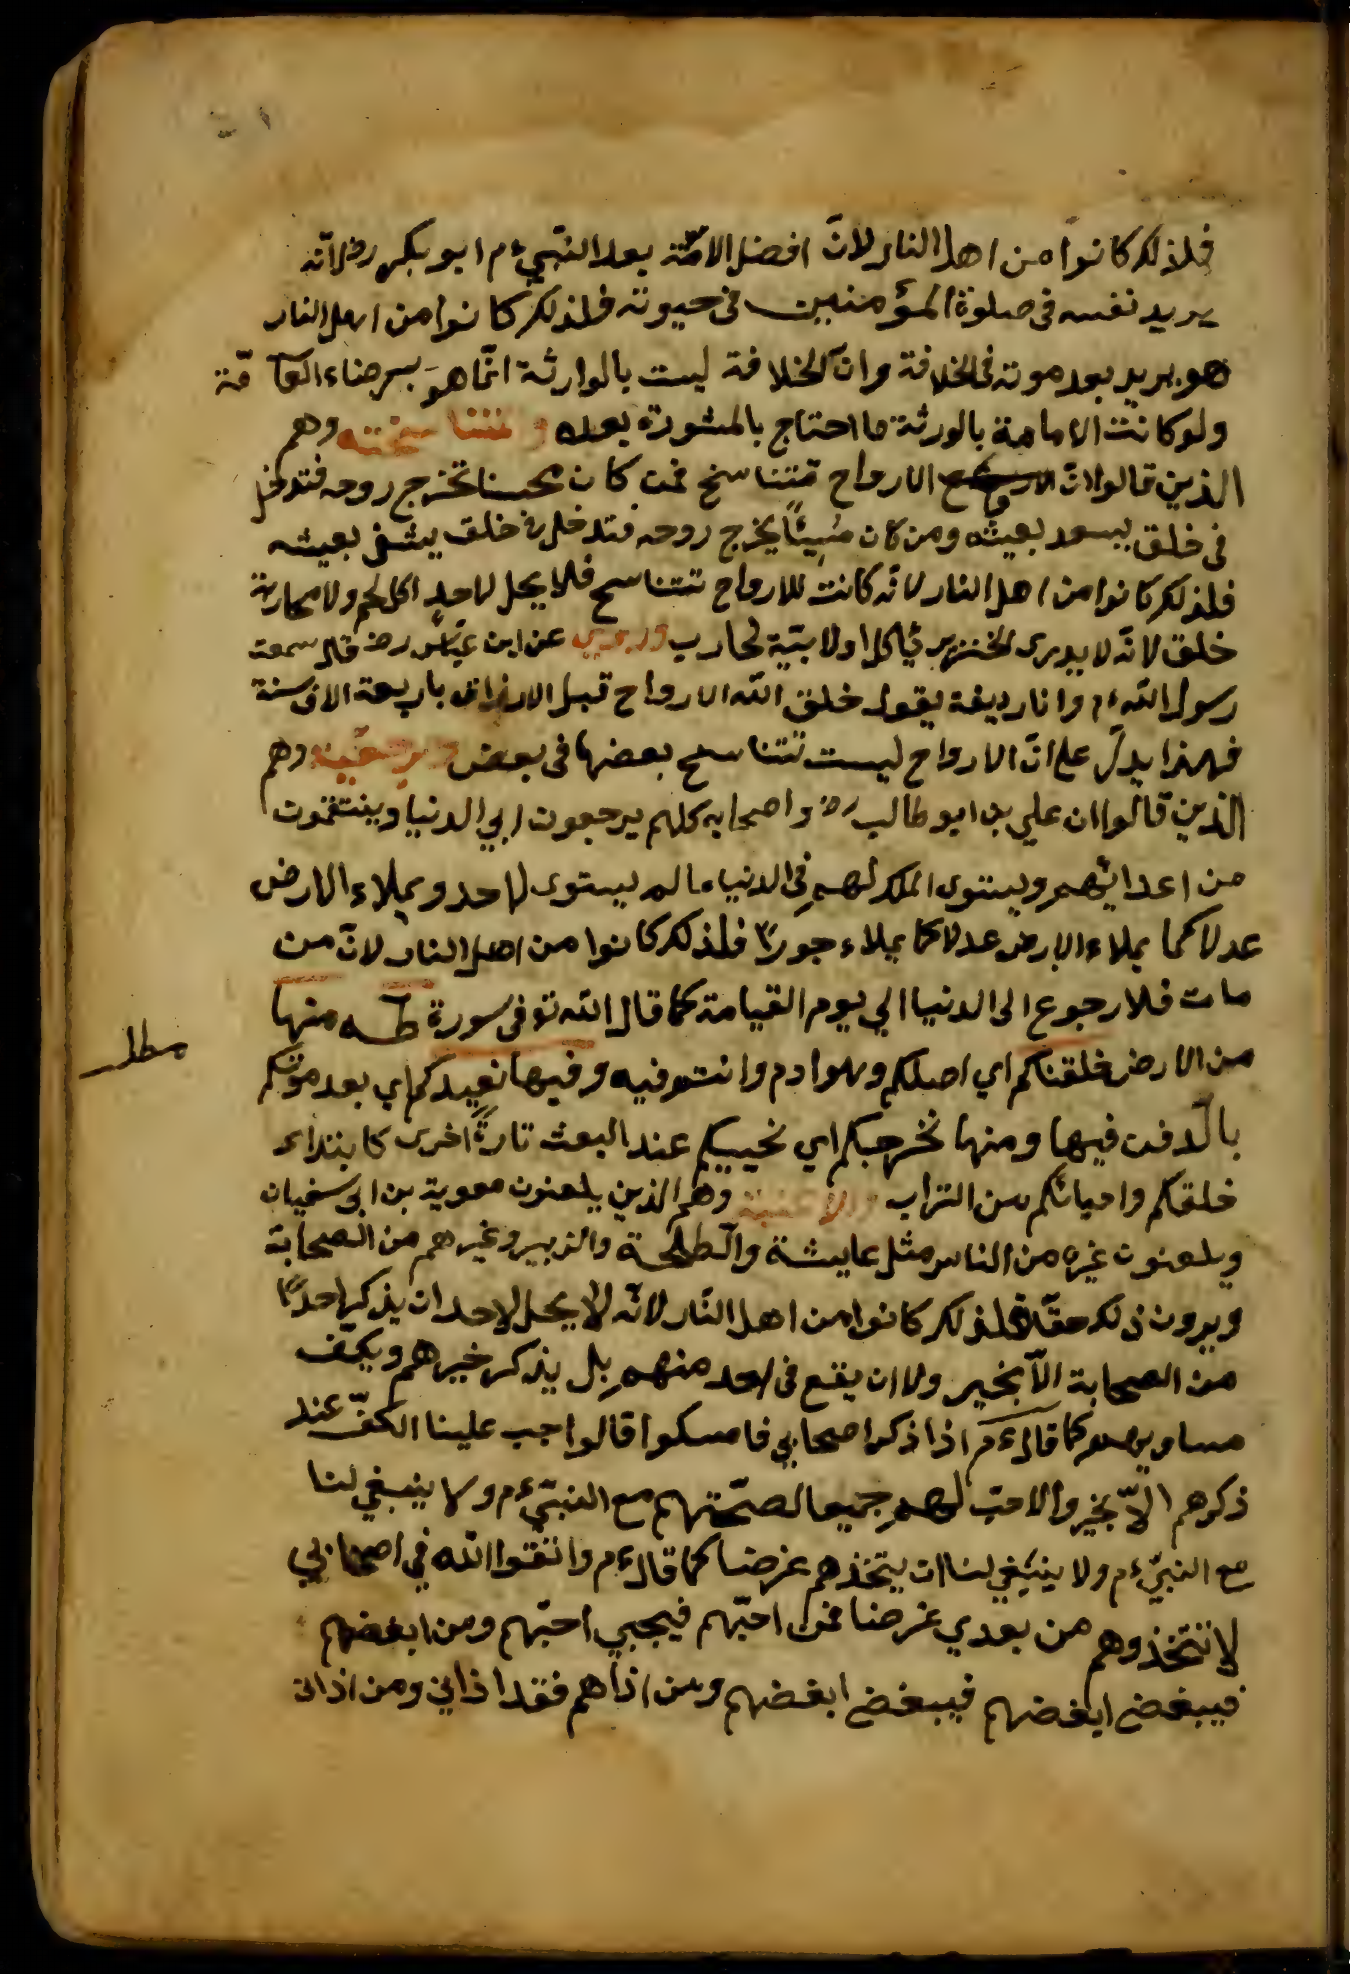 فلذلك كانوا من اهل النار لانّ افضل الامّة بعد النبيّ ءم ابو بكر رض لانّه
يريد نفسه فى صلوة المؤمنين فى حيوته فلذلك كانوا من اهل النار
هو يريد بعد موته فى الخلافة وانّ الخلافة ليست بالوارثة انّما هو برضاء العآمّة
ولو كانت الامامة بالورثة ما احتاج بالمشورة بعده والمتناسخية وهم
الذين قالوا انّ الارواح تتناسخ فمن كان محسنا تخرج روحه فتدخل
فى خلق يسعد بعيشه ومن كان مُسِيئًا يخرج روحه فتدخل فى خلق يشقى بعيشه
فلذلك كانوا من اهل النار لانّه كانت للارواح تتناسخ فلا يحل لاحدٍ اكل لحم ولا محاربة
خلق لانّه لا يدرى لخنزير يأكل اولابيّه لحارب وروي عن ابن عبّاس رض قال سمعت
رسول الله ءم وانا رديفه يقول خلق الله الارواح قبل الارزاق باربعة الاف سنة
فهذا يدلّ على انّ الارواح ليست تتناسخ بعضها فى بعض والرجعية وهم
الذين قالوا ان علي بن ابو طالب رض واصحابه كلهم يرجعون الي الدنيا وينتقمون
من اعدائهم ويستوى الملك لهم فِى الدنيا ما لم يستوى لاحد ويملاء الارض
عدلا كما يملاء الارض عدلا كما يملاء جورًا فلذلك كانوا من اهل النار لانّ من
مات فلا رجوع الى الدنيا الي يوم القيامة كما قال الله تع فى سورة طه منها
مطلب
من الارض خلقناكم اي اصلكم وهو ادم وانتم فيه وفيها نعيدكم اي بعد موتكم
بالّدفن فيها ومنها نخرجكم اي نحييكم عند البعث تارةً اخرى كابتداء
خلقكم واحيائكم من التراب والاعنية وهم الذين يلعنون معوية بن ابى سفيان
ويلعنون غيره من الناس مثل عايشة والّطلحة والزبير وغيرهم من الصحابة
ويرون ذلك حقّا فلذلك كانوا من اهل النّار لانّه لا يحل لاحد ان يذكر احدًا
من الصحابة الاّ بخير ولا ان يقع فى احد منهم بل يذكر خيرهم ويكفّ
مساويهم كما قال ءم اذا ذكر اصحابي فامسكوا قالوا جب علينا الكفّ عند
ذكرهم الاّ بخير والاحبّ لهم جميعا لصحّتهم مع النبيّ ءم ولا ينبغي لنا
مع النبيّ ءم ولا ينبغي لنا ان يتخذهم غرضا كما قال ءم واتقوا الله في اصحابي
لا تتخذوهم من بعدي غرضا فمن احبّهم فيحبي احبّهم ومن ابغضهم
فيبغض ابغضهم فيبغض ابغضهم ومن اذاهم فقد اذاني ومن اذانى